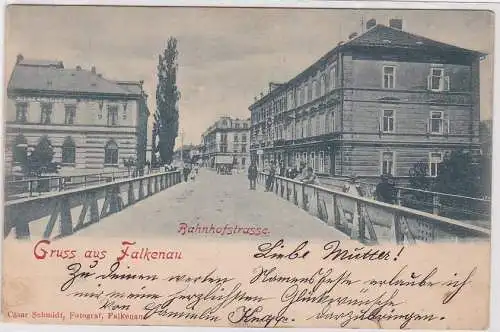 Bahnhofstrasse.
Gruss aus Falkenau
Liebe Mutter!
Zu Deinem werten Namensfeste erlaube ich
mir meine herzlichsten Glückwünsche
von Familie darzubringen.
Cäsar Schmidt, Fotograf, Falkenau